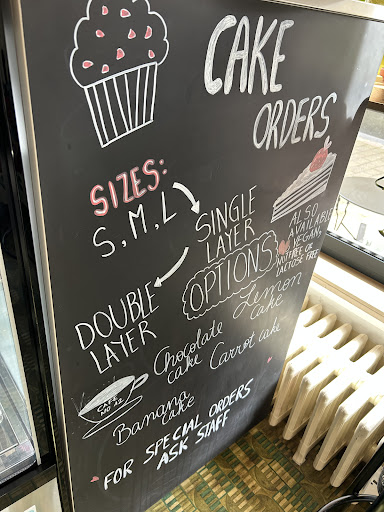 CAKE
ORDERS
SIZES:
S, M, L
SINGLE
LAYER
ALSO
AVAILABLE
VEGAN,
NUTFREE OR
LACTOSE FREE
OPTIONS
DOUBLE
LAYER
Lemon
cake
Chocolate
cake
Carrot cake
Banana
cake
FOR SPECIAL ORDERS
ASK STAFF